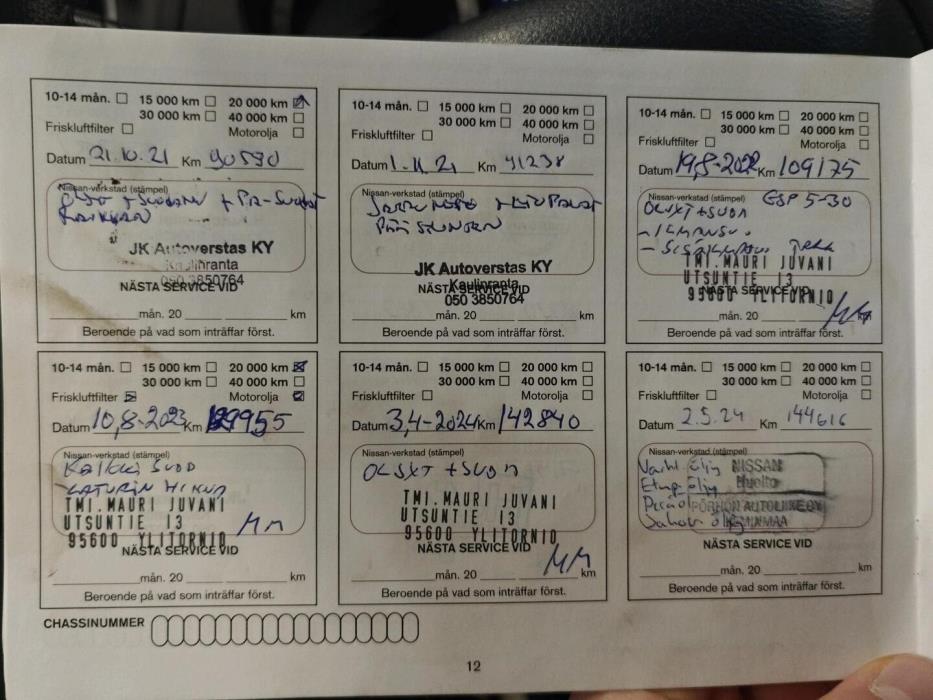 10-14 mån. 15 000 km 20 000 km
30 000 km 40 000 km
Friskluftfilter Motorolja
Datum 21.10.21 Km 90590
Nissan-verkstad (stämpel)
JK Autoverstas KY
Kaulinranta
050 3850764
NÄSTA SERVICE VID
mån. 20 km
Beroende på vad som inträffar först.
10-14 mån. 15 000 km 20 000 km
30 000 km 40 000 km
Friskluftfilter Motorolja
Datum 1.11.21 Km 91238
Nissan-verkstad (stämpel)
JK Autoverstas KY
Kaulinranta
NÄSTA SERVICE VID
050 3850764
mån. 20 km
Beroende på vad som inträffar först.
10-14 mån. 15 000 km 20 000 km
30 000 km 40 000 km
Friskluftfilter Motorolja
Datum 19,8-2022 Km 109175
Nissan-verkstad (stämpel) ESP 5-30
TMI.MAURI JUVANI
UTSUNTIE 13
NÄSTA SERVICE VID
95600 YLITORNIO
mån. 20 km
Beroende på vad som inträffar först.
10-14 mån. 15 000 km 20 000 km
30 000 km 40 000 km
Friskluftfilter Motorolja
Datum 10,8-2023 Km 129955
Nissan-verkstad (stämpel)
Kaikki SUOD
TMI.MAURI JUVANI
UTSUNTIE 13
95600 YLITORNIO
NÄSTA SERVICE VID
mån. 20 km
Beroende på vad som inträffar först.
10-14 mån. 15 000 km 20 000 km
30 000 km 40 000 km
Friskluftfilter Motorolja
Datum 3,4-2024 Km 142840
Nissan-verkstad (stämpel)
TMI.MAURI JUVANI
UTSUNTIE 13
95600 YLITORNIO
NÄSTA SERVICE VID
mån. 20 km
Beroende på vad som inträffar först.
10-14 mån. 15 000 km 20 000 km
30 000 km 40 000 km
Friskluftfilter Motorolja
Datum 2.5.24 Km 144616
Nissan-verkstad (stämpel)
Vaiht. öljy NISSAN
Etup. öljy Huolto
PÖRHÖN AUTOLIIKE OY
NÄSTA SERVICE VID
mån. 20 km
Beroende på vad som inträffar först.
CHASSINUMMER
12